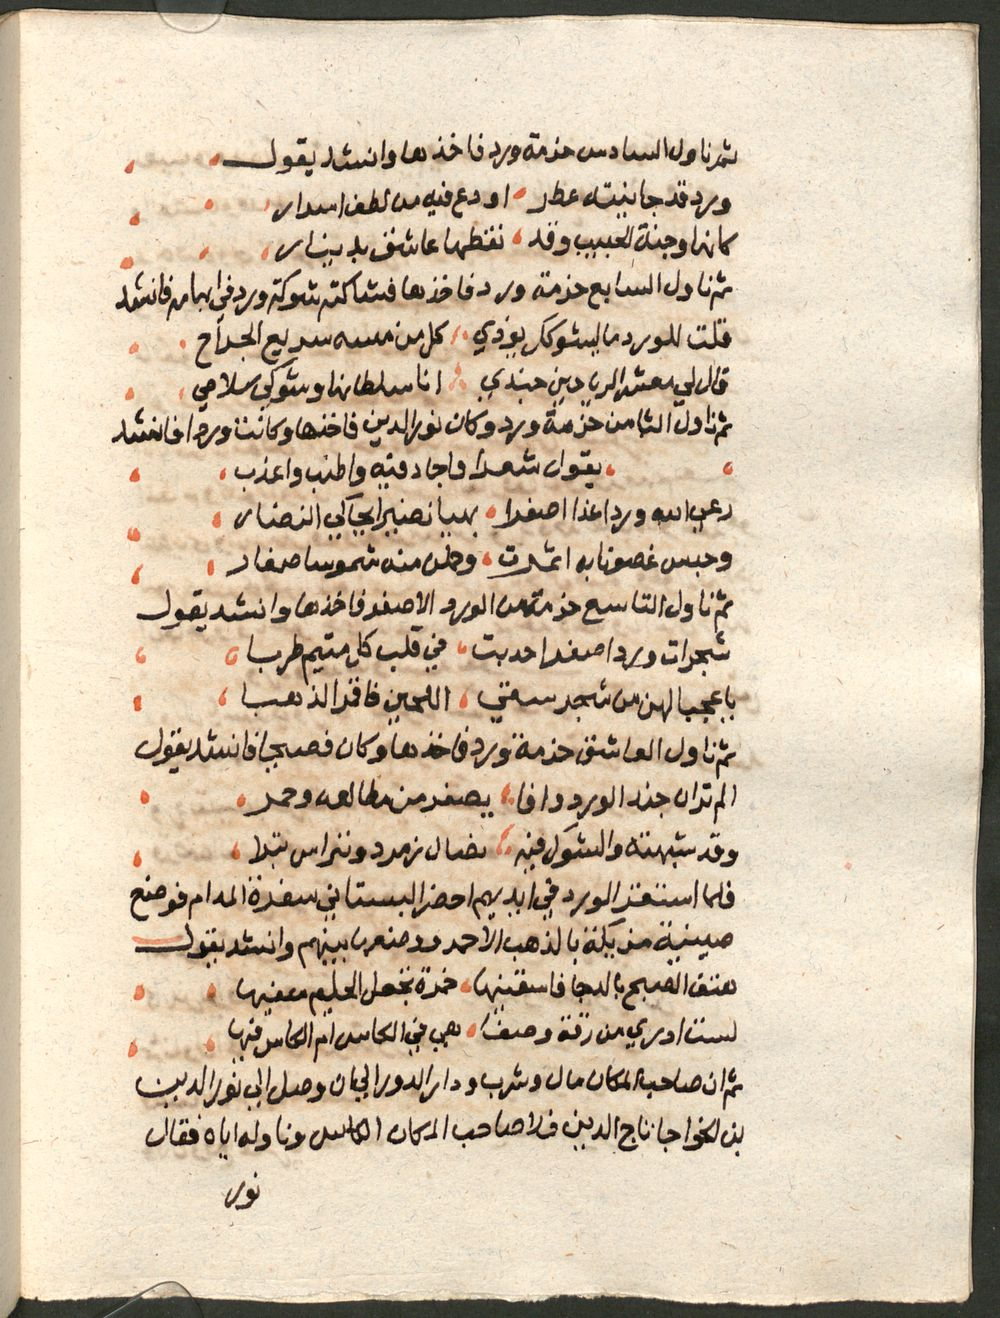 ثم ناول السادس حزمة ورد فاخذها وانشد يقول
ورد قد جا نبيته عطار اودع فيه من لطف اسرار
كانها وجنة الحبيب وقد نقطها عاشق بدينار
ثم ناول السابع حزمة ورد فاخذها فشاكته شوكة ورد في ابهامه فانشد
قلت للورد ما لشوكك يؤذي كل من مسه سريع الجراح
قال لي معشر الرياحين جندي انا سلطانها وشوكي سلاحي
ثم ناول الثامن حزمة ورد وكان نور الدين فاخذها وكانت وردا فانشد
يقول شعرا واجاد فيه واطنب واعذب
رعي الله وردا غدا اصفرا بهيا نضيرا يحاكي النضار
وحبس غصونا به اثمرت وحملن منه شموسا صغار
ثم ناول التاسع حزمة من الورد الاصفر فاخذها وانشد يقول
شجرات ورد اصفر احدبت في قلب كل متيم طربا
يا عجبا لهن من شجر سقي اللجين فاقد الذهبا
ثم ناول العاشق حزمة ورد فاخذها وكان فصيحا فانشد يقول
الم تر ان جند الورد وافا يصفر من مطالعه وحمر
وقد شبهته والشوك فيه نصال زمرد وتراس تبرا
فلما استقر الورد في ايديهم احضر البستاني سفرة المدام فوضع
صينية مزيكة بالذهب الاحمر ووضعها بينهم وانشد يقول
هتف الصبح بالدجا فاسقنيها خمرة تجعل الحليم سفيها
لست ادري من رقة وصفا هي في الكاس ام الكاس فيها
ثم ان صاحب المكان مال وشرب ودار الدور الي ان وصل الي نور الدين
بن الخواجا تاج الدين فلا صاحب المكان الكاس وناوله اياه فقال
نور